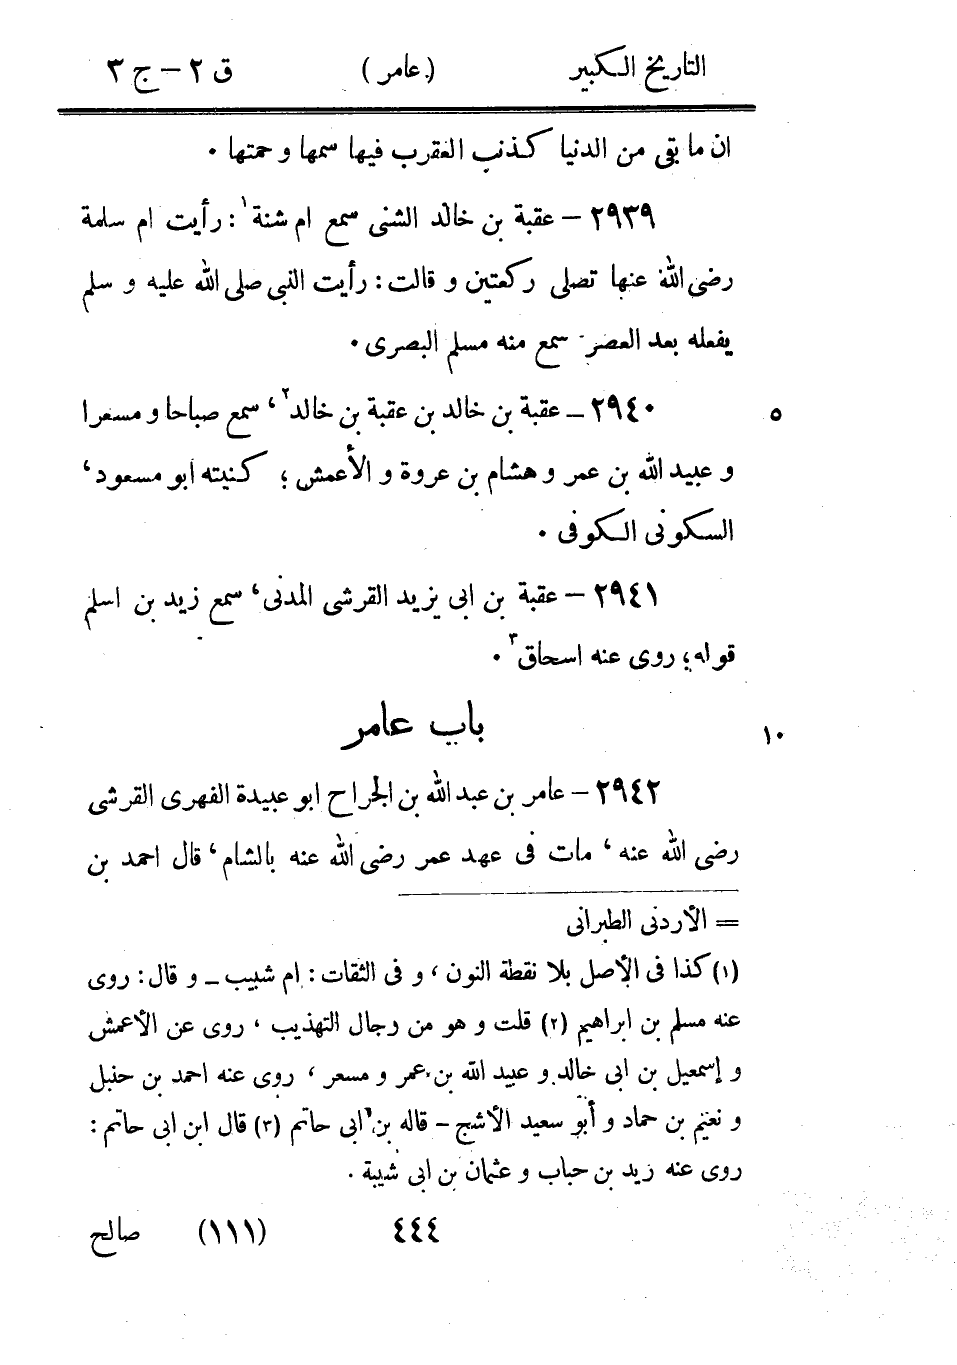 التاريخ الكبير (عامر) ق ٢ – ج ٣
ان ما بقى من الدنيا كذنب العقرب فيها سمها و حمتها ٠
٢٩٣٩ – عقبة بن خالد الشنى سمع ام شنة ١ : رأيت ام سلمة
رضى الله عنها تصلى ركعتين و قالت : رأيت النبى صلى الله عليه و سلم
يفعله بعد العصر سمع منه مسلم البصرى ٠
٢٩٤٠ – عقبة بن خالد بن عقبة بن خالد ٢ ، سمع صباحا و مسعرا ٥
و عبيد الله بن عمر و هشام بن عروة و الأعمش ؛ كنيته ابو مسعود ،
السكونى الكوفى ٠
٢٩٤١ – عقبة بن ابى يزيد القرشى المدنى ، سمع زيد بن اسلم
قوله ؛ روى عنه اسحاق ٣ ٠
باب عامر ١٠
٢٩٤٢ – عامر بن عبد الله بن الجراح ابو عبيدة الفهرى القرشى
رضى الله عنه ، مات فى عهد عمر رضى الله عنه بالشام ، قال احمد بن
= الأردنى الطبرانى
(١) كذا فى الأصل بلا نقطة النون ، و فى الثقات : ام شبيب – و قال : روى
عنه مسلم بن ابراهيم (٢) قلت و هو من رجال التهذيب ، روى عن الأعمش
و إسمعيل بن ابى خالد و عبيد الله بن عمر و مسعر ، روى عنه احمد بن حنبل
و نعيم بن حماد و أبو سعيد الأشج – قاله بن ابى حاتم (٣) قال ابن ابى حاتم :
روى عنه زيد بن حباب و عثمان بن ابى شيبة ٠
٤٤٤ (١١١) صالح